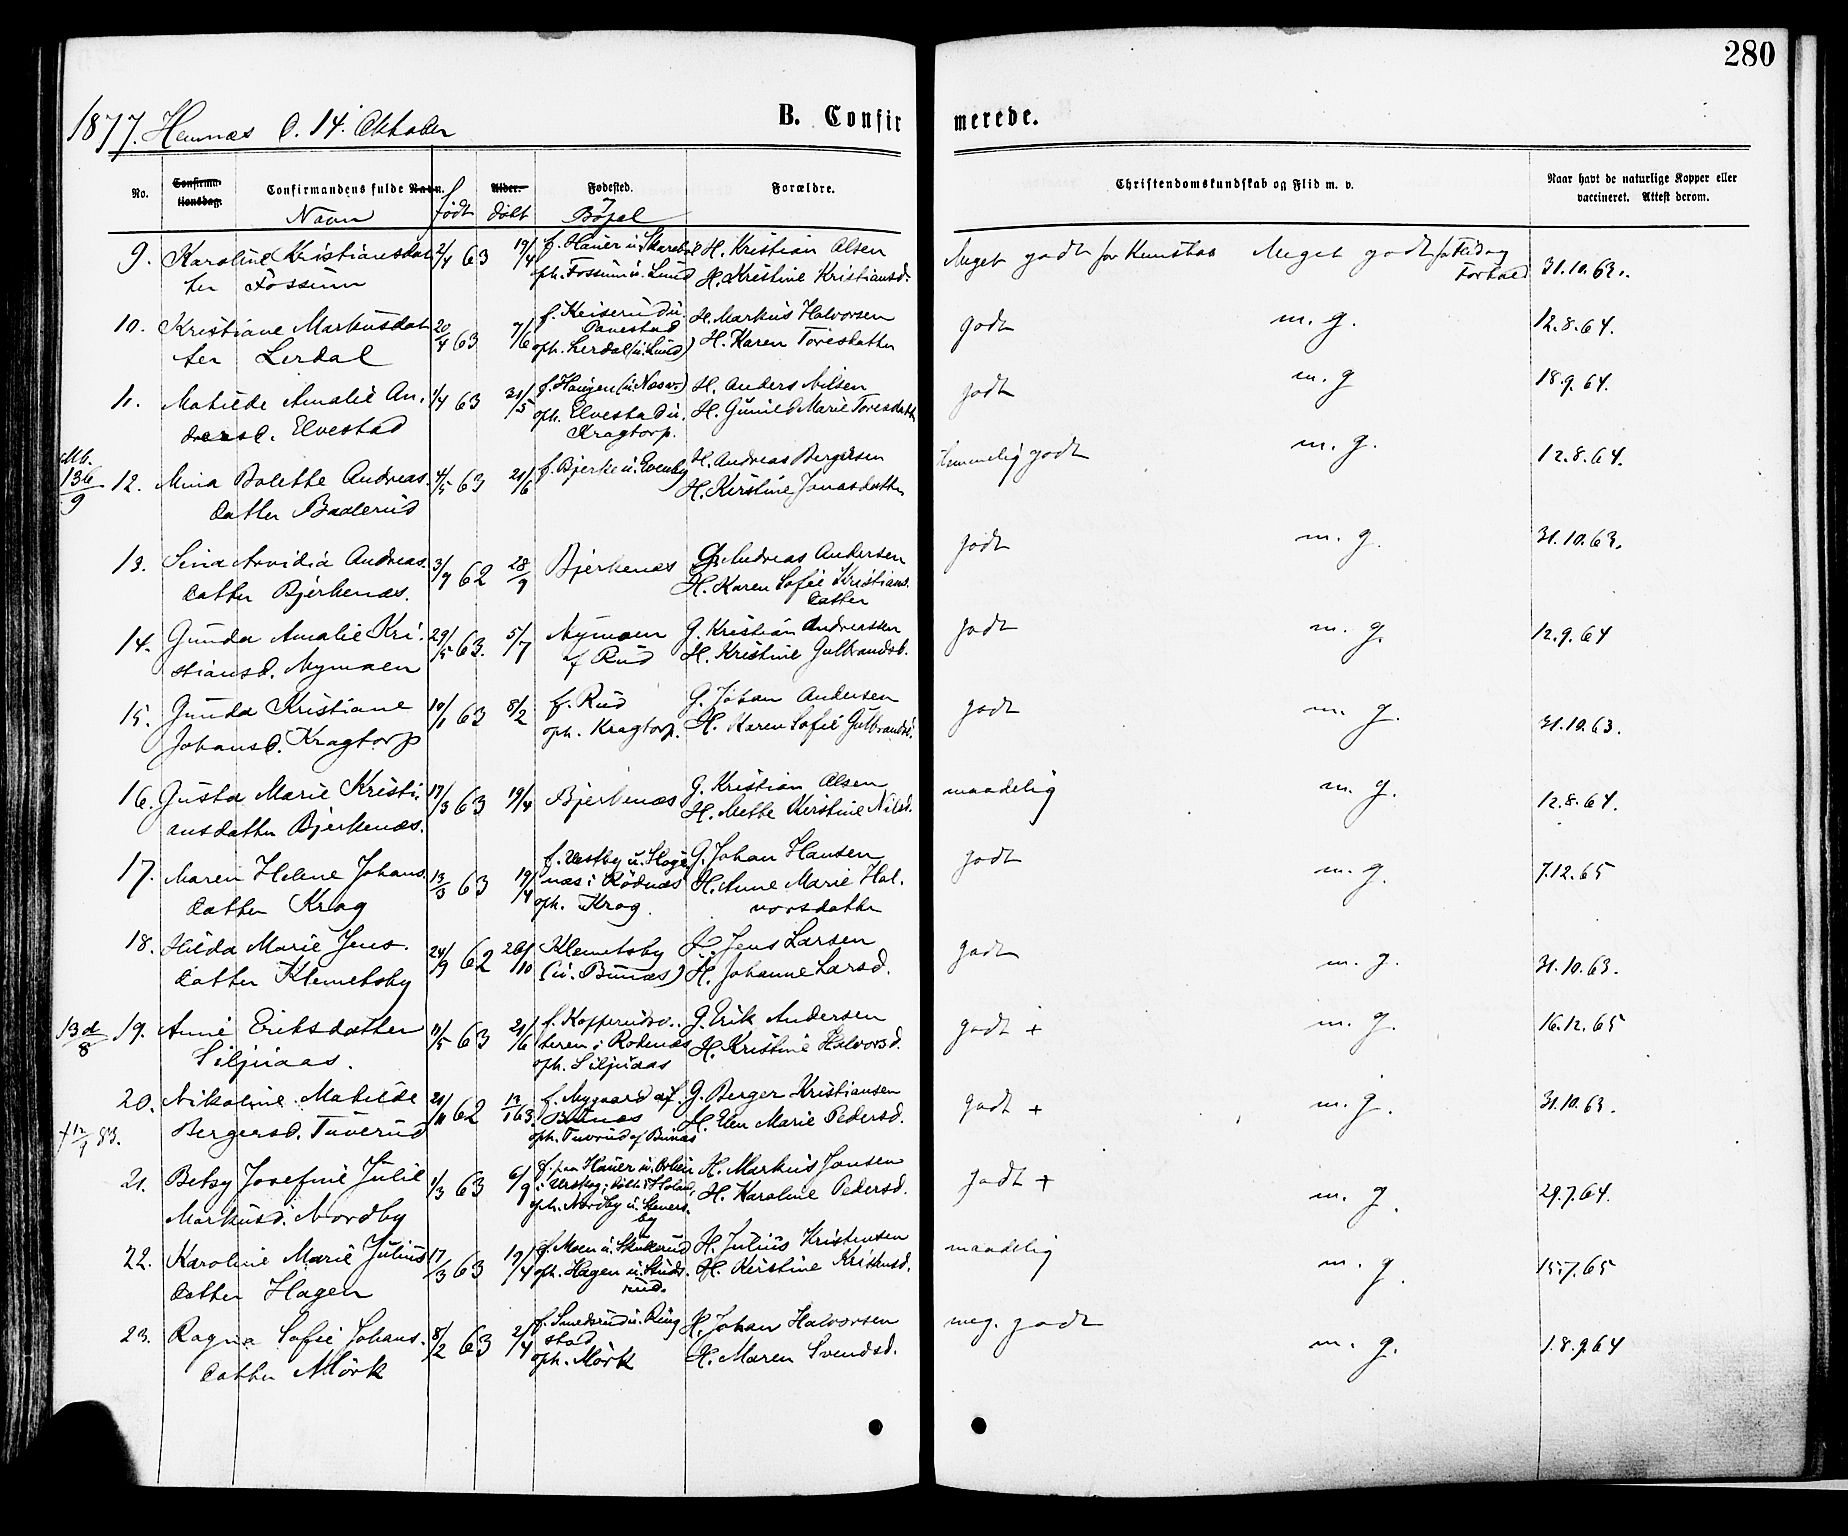 280
1877. Hemnæs d. 14. Oktober
B. Confirmerede.
No.
Confirma-
tionsdag.
Confirmandens fulde Navn.
Navn
født
Alder.
døbt
Fødested.
Bopæl
Forældre.
Christendomskundskab og Flid m. v.
Naar havt de naturlige Kopper eller
vaccineret. Attest derom.
9. Karoline Kristiansdat 2/4 63 19/4 f. Hauer u. H. Kristian Olsen
ter Fossum oph. Fossum u. Lund H. Kristine Kristiansd.
Meget godt for Kundskab Meget godt for Flid og
Forhold 31.10.63.
10. Kristiane Markusdat 20/4 63 7/6 f. Keiserud u. H. Markus Halvorsen
ter Lerdal oph. Lerdal (u. Lund) H. Karen Toresdatter
godt m. g. 12.8.64.
11. Matilde Amalie An. 1/4 63 21/5 f. Haugen H. Anders Nilsen
dersd. Elvestad oph. Elvestad u. H. Gunild Marie Toresdatt
Kragtorp.
godt m. g 18.9.64.
136/9 12. Mina Bolette Andreas. 4/5 63 21/6 f. Bjerke u. Evenby H. Andreas Bergersen
datter Baaterud H. Kirstine Jonasdatter
temmelig godt m. g. 12.8.64.
13. Sina Arvidia Andreas. 3/9 62 28/9 Bjerkenæs Andreas Andersen
datter Bjerkenæs. H. Karen Sofie Kristians.
datter
godt m. g. 31.10.63.
14. Gunda Amalie Kri. 29/5 63. 5/7 Nymoen G. Kristian Andreassen
stiansd. Nymoen af Rud H. Kristine Gulbrandsd.
godt m. g. 12.9.64
15. Gunda Kristiane 10/1 63 8/2 f. Rud G. Johan Andersen
Johansd. Kragtorp oph. Kragtorp. H. Karen Sofie Gulbrandsd.
godt m. g. 31.10.63.
16. Gusta Marie Kristi. 17/3 63 19/4 Bjerkenæs G. Kristian Olsen
ansdatter Bjerkenæs. H. Mette Kirstine Nilsd.
maadelig m. g. 12.8.64.
17. Maren Helene Johans. 13/3 63 19/4 f. Vestby u. G. Johan Hansen
datter Krog næs i Rødnæs H. Anne Marie Hal.
oph. Krog. vorsdatter
godt m. g. 7.12.65
18. Hilda Marie Jens. 24/9 62 26/10 Klemetsby Jens Larsen
datter Klemetsby (u. Bunæs) H. Johanne Larsd.
godt m. g. 31.10.63.
13d/8 19. Anne Eriksdatter 11/5 63 21/6 f. G. Erik Andersen
Siljuaas. teren i Rødenæs H. Kristine Halvorsd.
oph. Siljuaas
godt + m. g. 16.12.65
20. Nikoline Matilde 21/11 62 12/1 63 f. Nygaard af. G. Berger Kristiansen
83. Bergersd. Tuverud Bunæs H. Elen Marie Pedersd.
oph. Tuverud af Bunæs
godt + m. g. 31.10.63.
21. Betsy Josefine Julie 1/3 63 6/9 f. paa Hauer u. H. Markus Jansen
Markusd. Nordby i Urskog; døbt i Høland, H. Karoline Pedersd.
oph. Nordby u.
by
godt + m. g. 29.7.64.
22. Karoline Marie Julius 17/3 63 19/4 f. Moen u. H. Julius Kristensen
datter Hagen oph. Hagen u. H. Kirstine Kristensd.
rud.
maadelig m. g. 15.7.65
23. Ragna Sofie Johans. 8/2 63 2/4 f. Smedsrud u. Ring H. Johan Halvorsen
datter Mörk stad H. Maren Svendsd.
oph. Mörk
meg. godt m. g. 18.9.64